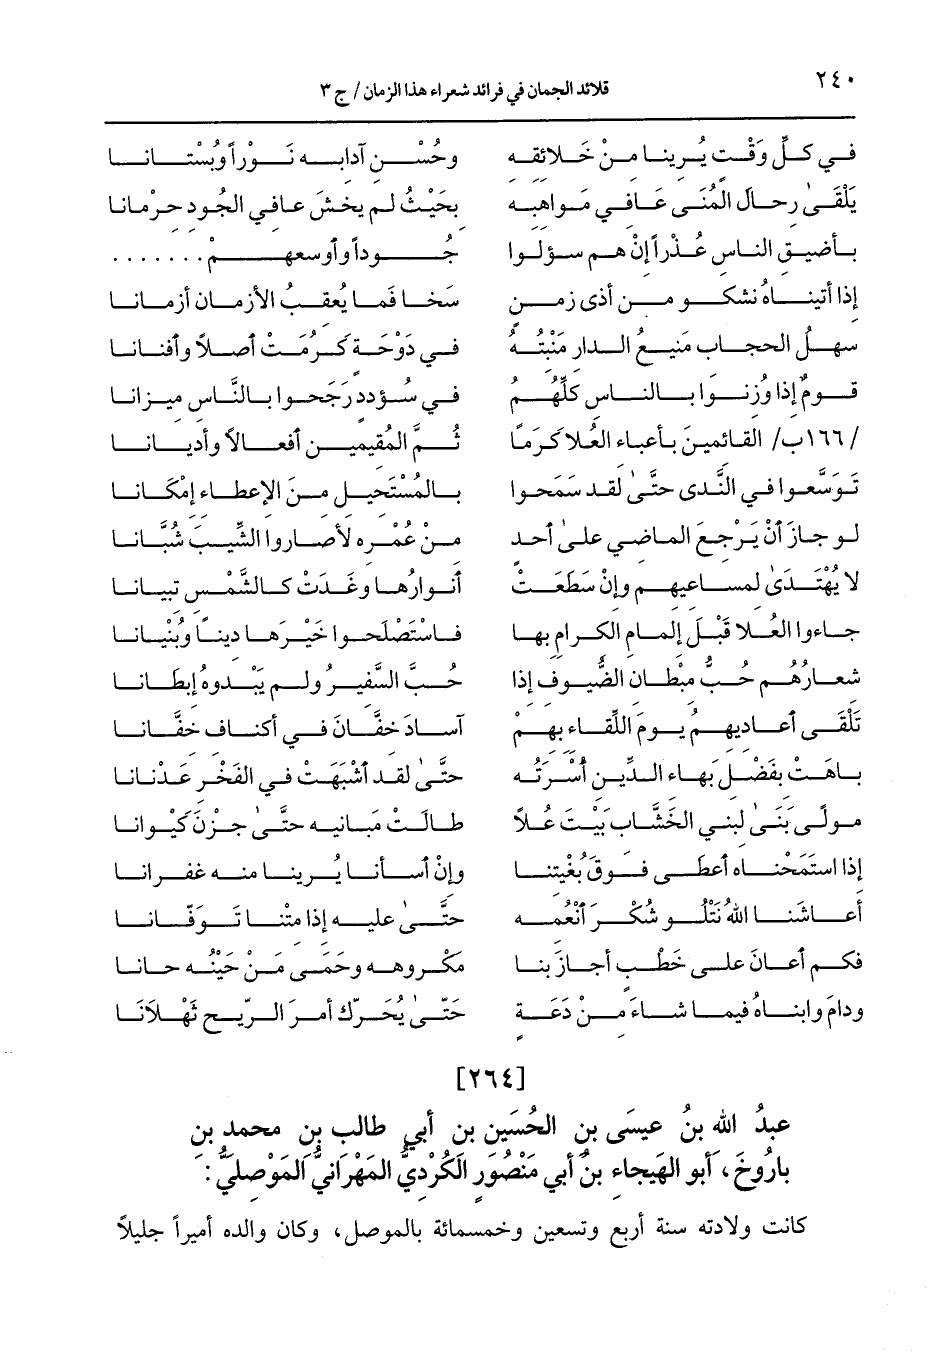 ٢٤٠
قلائد الجمان في فرائد شعراء هذا الزمان / ج ٣
في كلِّ وَقْتٍ يُرينا مِنْ خَلائقه وحُسْنِ آدابه نَوْراً وبُستانا
يَلْقَىٰ رحال المُنَى عَافي مَواهبه بحَيْثُ لم يخش عافي الجُود حرمانا
بأضيق الناس عُذْراً إنْ هم سؤلوا جُوداً وأوسعهم .......
إذا أتيناهُ نشكو من أذى زمنٍ سخا فما يُعقبُ الأزمان أزمانا
سهلُ الحجاب منيع الدار منْبته في دَوْحَة كَرُمَتْ أصلاً وأفنانا
قومٌ إذا وُزنوا بالناس كلُّهُمُ في سُؤدد رَجَحوا بالنَّاس ميزانا
/ ١٦٦ب/ القائمين بأعباء العُلا كَرمَاً ثُمَّ المُقيمين أفعالاً وأديانا
تَوسَّعوا في النَّدى حتَّىٰ لقد سَمَحوا بالمُستحيل منَ الإعطاء إمكانا
لو جازَ أنْ يَرْجعَ الماضي علىٰ أحد من عُمْره لأصاروا الشِّيبَ شُبَّانا
لا يُهْتَدَىٰ لمساعيهم وإنْ سَطَعَتْ أنوارُها وغَدَتْ كالشَّمس تبيانا
جاءوا العُلا قَبْلَ إلمام الكرام بها فاسْتَصْلحوا خَيْرَها ديناً وبُنْيانا
شعارُهُم حُبُّ مبْطان الضُّيوف إذا حُبَّ السَّفيرُ ولم يَبْدوهُ إبطانا
تَلْقَى أعاديهم يومَ اللِّقاء بهمْ آسادَ خفَّانَ في أكناف خَفَّانا
باهَتْ بفَضْل بَهاء الدِّين أُسْرَتُه حتَّىٰ لقد أشبَهَتْ في الفَخْر عَدْنانا
مولًى بَنَىٰ لبني الخَشَّاب بَيْتَ عُلاً طالَتْ مَبانيه حتَّىٰ جزْنَ كَيْوانا
إذا استَمَحْناه أعطى فوقَ بُغْيتنا وإنْ أسأنا يُرينا منه غفرانا
أعاشَنا اللهُ نَتْلُو شُكْرَ أنْعُمه حتَّىٰ عليه إذا متْنا تَوَفّانا
فكم أعانَ على خَطْبٍ أجازَ بنا مكروهه وحَمَى منْ حَيْنه حانا
ودامَ وابناهُ فيما شاءَ منْ دَعَة حَتَّىٰ يُحَرِّكَ أمرَ الرِّيح ثَهْلانَا
[٢٦٤]
عبدُ الله بنُ عيسَى بن الحُسَين بن أبي طالب بن محمد بن
باروخَ، أبو الهيجاء بنُ أبي مَنْصُور الكُرديُّ المَهْرَانيُّ المَوْصليُّ:
كانت ولادته سنة أربع وتسعين وخمسمائة بالموصل، وكان والده أميراً جليلاً